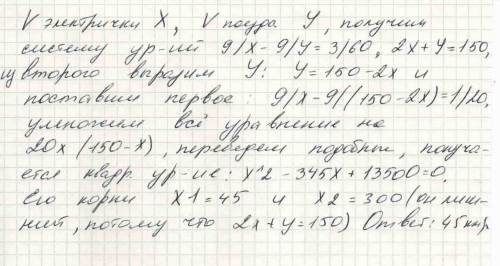 V электрички X, V поезда Y, получим
систему ур-ий 9/X-9/Y=3/60, 2X+Y=150,
из второго выразим Y: Y=150-2X и
поставим первое: 9/X-9/(150-2X)=1/20,
умножим всё уравнение на
20X(150-X), переведем подобные, получа-
ется квадр. ур-ие: X^2-345X+13500=0.
Его корни X1=45 и X2=300 (он лиш-
ний, потому что 2X+Y=150) Ответ: 45 км/ч